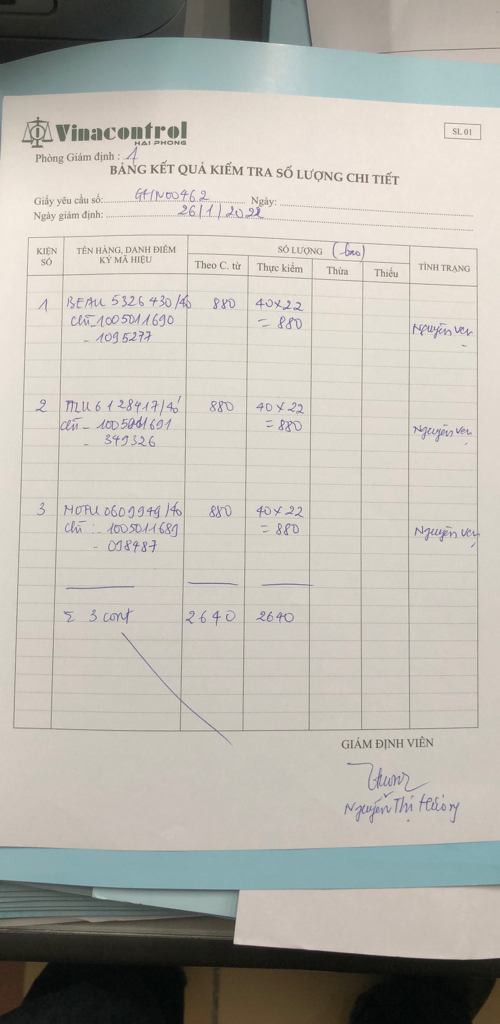 Vinacontrol
HAI PHONG
SL 01
Phòng Giám định : 1
BẢNG KẾT QUẢ KIỂM TRA SỐ LƯỢNG CHI TIẾT
Giấy yêu cầu số: Ngày:
Ngày giám định: 26/1/2022
KIỆN SỐ TÊN HÀNG, DANH ĐIỂM KÝ MÃ HIỆU SỐ LƯỢNG (bao) TÌNH TRẠNG
Theo C. từ Thực kiểm Thừa Thiếu
1 BEAU 5326430/40 880 40x22
chì - 1005011690 = 880 Nguyên vẹn
- 1095277
2 6128417/40' 880 40x22
chì - 1005011691 = 880 Nguyên vẹn
- 349326
3 MOTU 0609949/40 880 40x22
chì : - 1005011689 = 880 Nguyên vẹn
- 098487
Σ 3 cont 2640 2640
GIÁM ĐỊNH VIÊN
Nguyễn Thị Hương